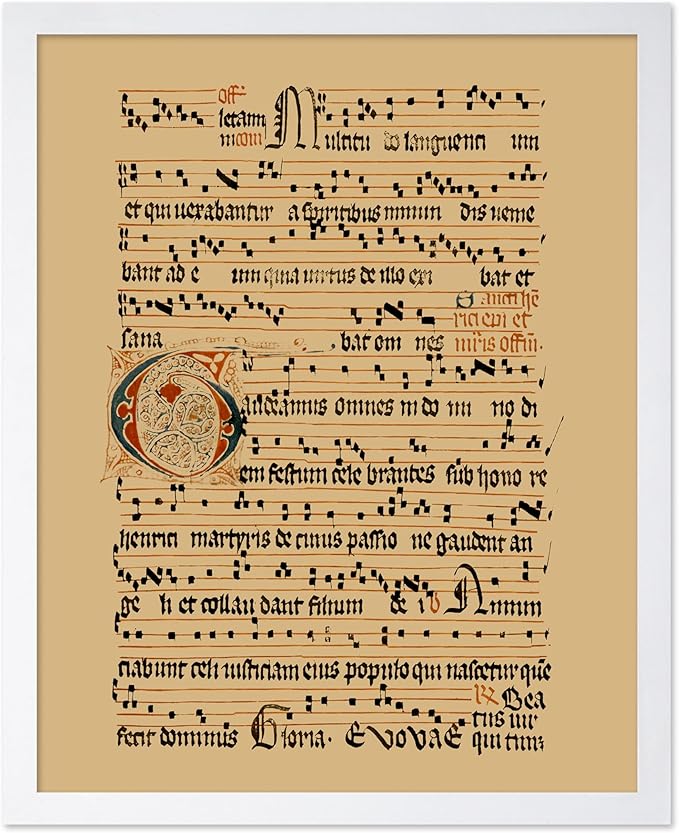 off
letamini com Multitudo languenti um
et qui uexabantur a spiritibus inmun dis ueme
bant ad e um quia uirtus de illo exi bat et
sana bat om nes
Sancti he
rici epi et
mris offm.
Gaudeamus omnes in do mi no di
em festum cele brantes sub hono re
henrici martyris de cuius passio ne gaudent an
ge li et collau dant filium de i v Annun
ciabunt celi iusticiam eius populo qui nascetur que
fecit dominus Gloria. EVOVAE
Bea
tus uir
qui tim